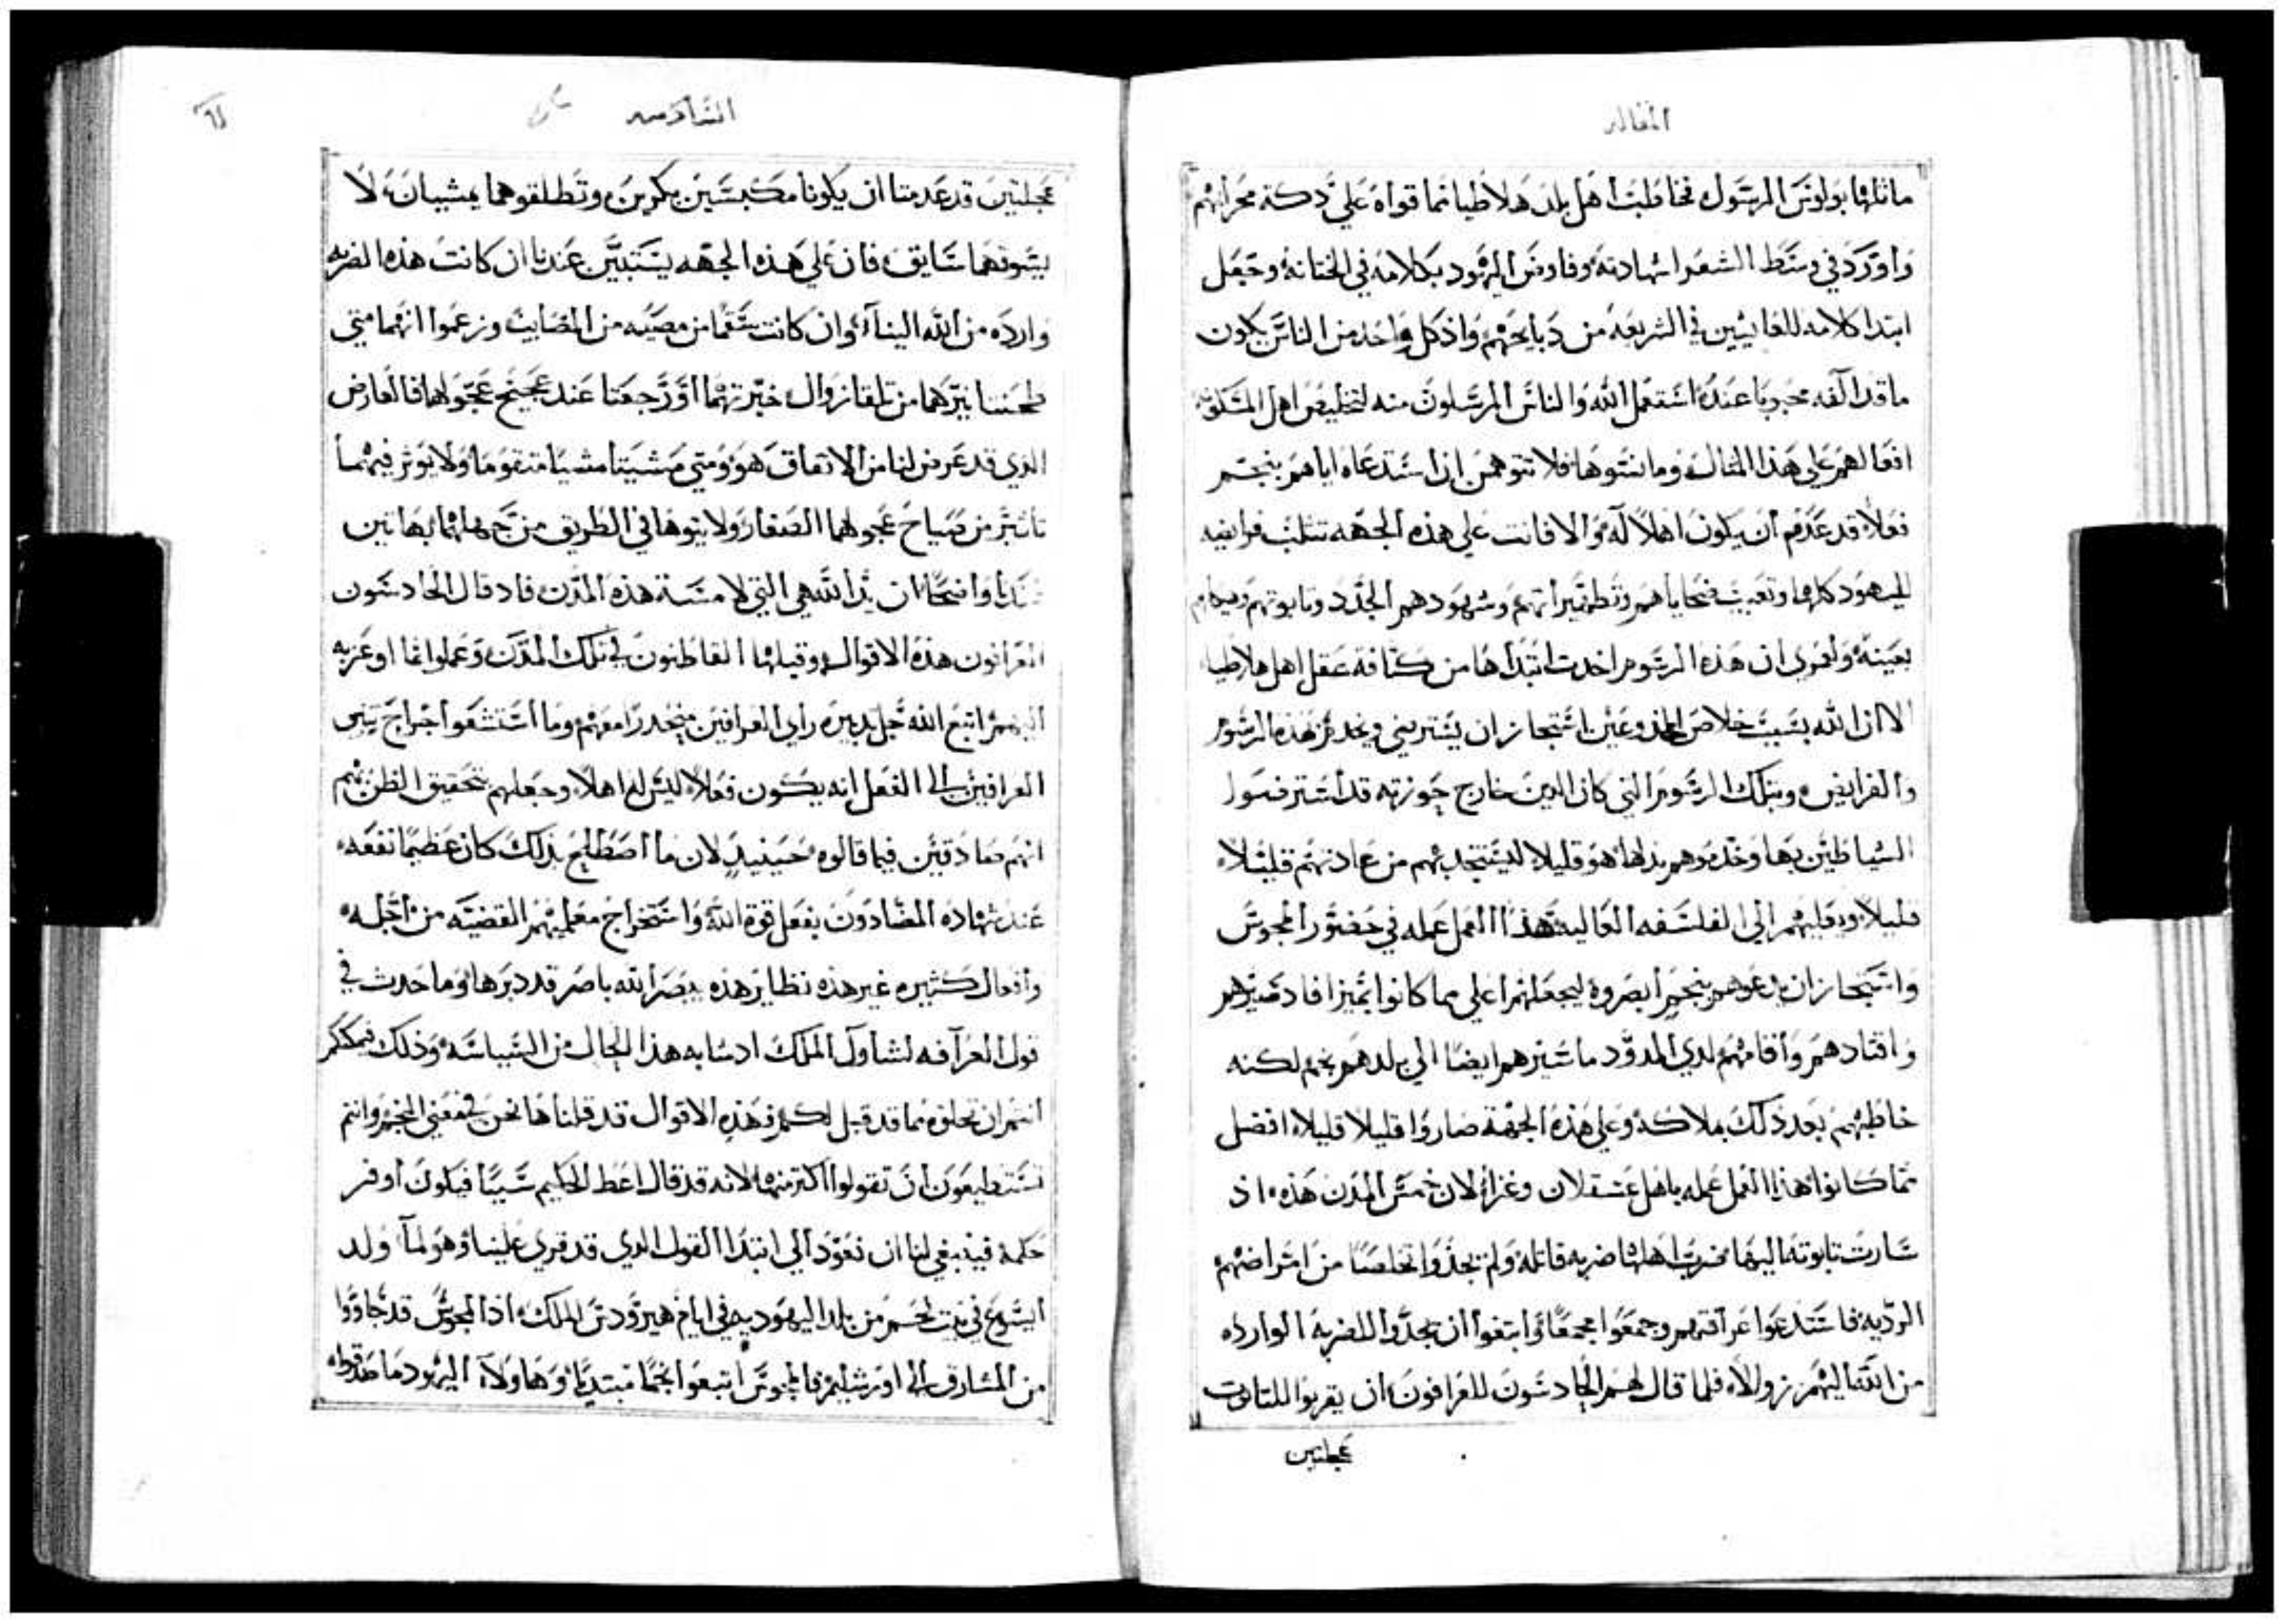 المقاله
ماثلها بولوس الرسول فخاطب اهل بلد هلاطيا مما قراه علي دكة محرابهم
واورد في وسط الشعرا شهادته وفاوض اليهود بكلامه في الختانه وجعل
ابتدا كلامه للعايشين في الشريعه من دبايحهم واذ كل واحد من الناس يكون
ما قد الفه محبوبا عنده استعمل الله والناس المرسلون منه لتخليص اهل المسكونه
افعالهم علي هذا المثال وما نشوها فلا تتوهمن ان استدعاه اياهم بنجم
فعلا قد عدم ان يكون اهلا له والا فانت علي هذه الجهه تثلب فرايضه
لليهود كلها وتعيب ضحاياهم وتطهيراتهم وشهودهم الجدد وتابوتهم وهيكلهم
بعينه ولعمري ان هذه الرسوم اخدت ابتداها من كثافة عقل اهل هلاطيا
الا ان الله بسبب خلاص المخدوعين استجاز ان يسترضي ويخدم بهذه الرسوم
والفرايض وبتلك الرسوم التي كان الدين خارج حوزته قد استرضوا
الشياطين بها وخدموهم بدلها هو قليلا ليستجدبهم من عادتهم قليلا
قليلا ويقلبهم الي الفلسفه العاليه هذا العمل عمله في حضور المجوس
واستجاز ان يدعوهم بنجم ابصروه ليجعلهم اعلي مما كانوا تميزا فاد صيرهم
واقتادهم واقامهم لدي المدود ما سيرهم ايضا الي بلدهم بنجم لكنه
خاطبهم بعد ذلك بملاكه وعلي هذه الجهة صاروا قليلا قليلا افضل
مما كانوا هذا العمل عمله باهل عسقلان وغزاه لان خمس المدن هذه اذ
سارت تابوته اليها ضرب اهلها ضربه قاتله ولم يجدوا تخلصا من امراضهم
الرديه فاستدعوا عرافتهم وجمعوا مجمعا وابتغوا ان يجدوا للضربه الوارده
من الله اليهم زوالا فلما قال لهم الحادسون للعرافون ان يقربوا للتابوت
عجلتين
السادسه
عجلتين قد عدمتا ان يكونا مكبستين بكرين وتطلقوهما يمشيان لا
يسوقهما سايق فان علي هذه الجهه يستبين عندنا ان كانت هذه الضربه
وارده من الله الينا وان كانت سقما من مصيبه من المصايب وزعموا انهما متي
طحنتا نيرهما من تلقا زوال خبرتهما او رجعتا عند عجيج عجولهما فالعارض
الدي قد عرض لنا من الاتفاق هو ومتي مشيتا مشيا متقوما ولا يوثر فيهما
تاثير من صياح عجولهما الصغار ولا يتوها في الطريق من جهلهما بها تبين
واضحا ان يد الله هي التي لامسة هذه المدن فاد قال الحادسون
العرافون هذه الاقوال وقبلها القاطنون في تلك المدن وعملوا بما اوعزبه
اليهم اتبع الله جل تدبيره راي العرافين منحدرا معهم وما استشعوا اخراج تبين
العرافين الي الفعل انه يكون فعلا ليس له اهلا وجعلهم بتحقيق الظن بهم
انهم صادقين فيما قالوه حينيد لان ما اصطلح بذلك كان عظيما نفعه
عند شهاده المضادون بفعل قوة الله واستخراج معلميهم القضيه من اجله
وافعال كثيره غير هذه نظاير هذه يبصر الله باصر قد دبرها وما حدث في
قول العرافه لشاول الملك ادشابه هذا الحال من السياسه وذلك فيمكنكم
انتم ان تحلوه مما قد قيل لكم فهذه الاقوال قد قلناها نحن في معني النجم وانتم
تستطيعون ان تقولوا اكثر منها لانه قد قال اعط الحكيم شيا فيكون اوفر
حكمة فينبغي لنا ان نعود الي ابتدا القول الدي قد قري علينا وهو لما ولد
ايسوع في بيت لحم من بلد اليهوديه في ايام هيرودس الملك اذا المجوس قد جاووا
من المشارق الي اورشليم فالمجوس اتبعوا نجما مبتديا وهاولا اليهود ما صدقوا